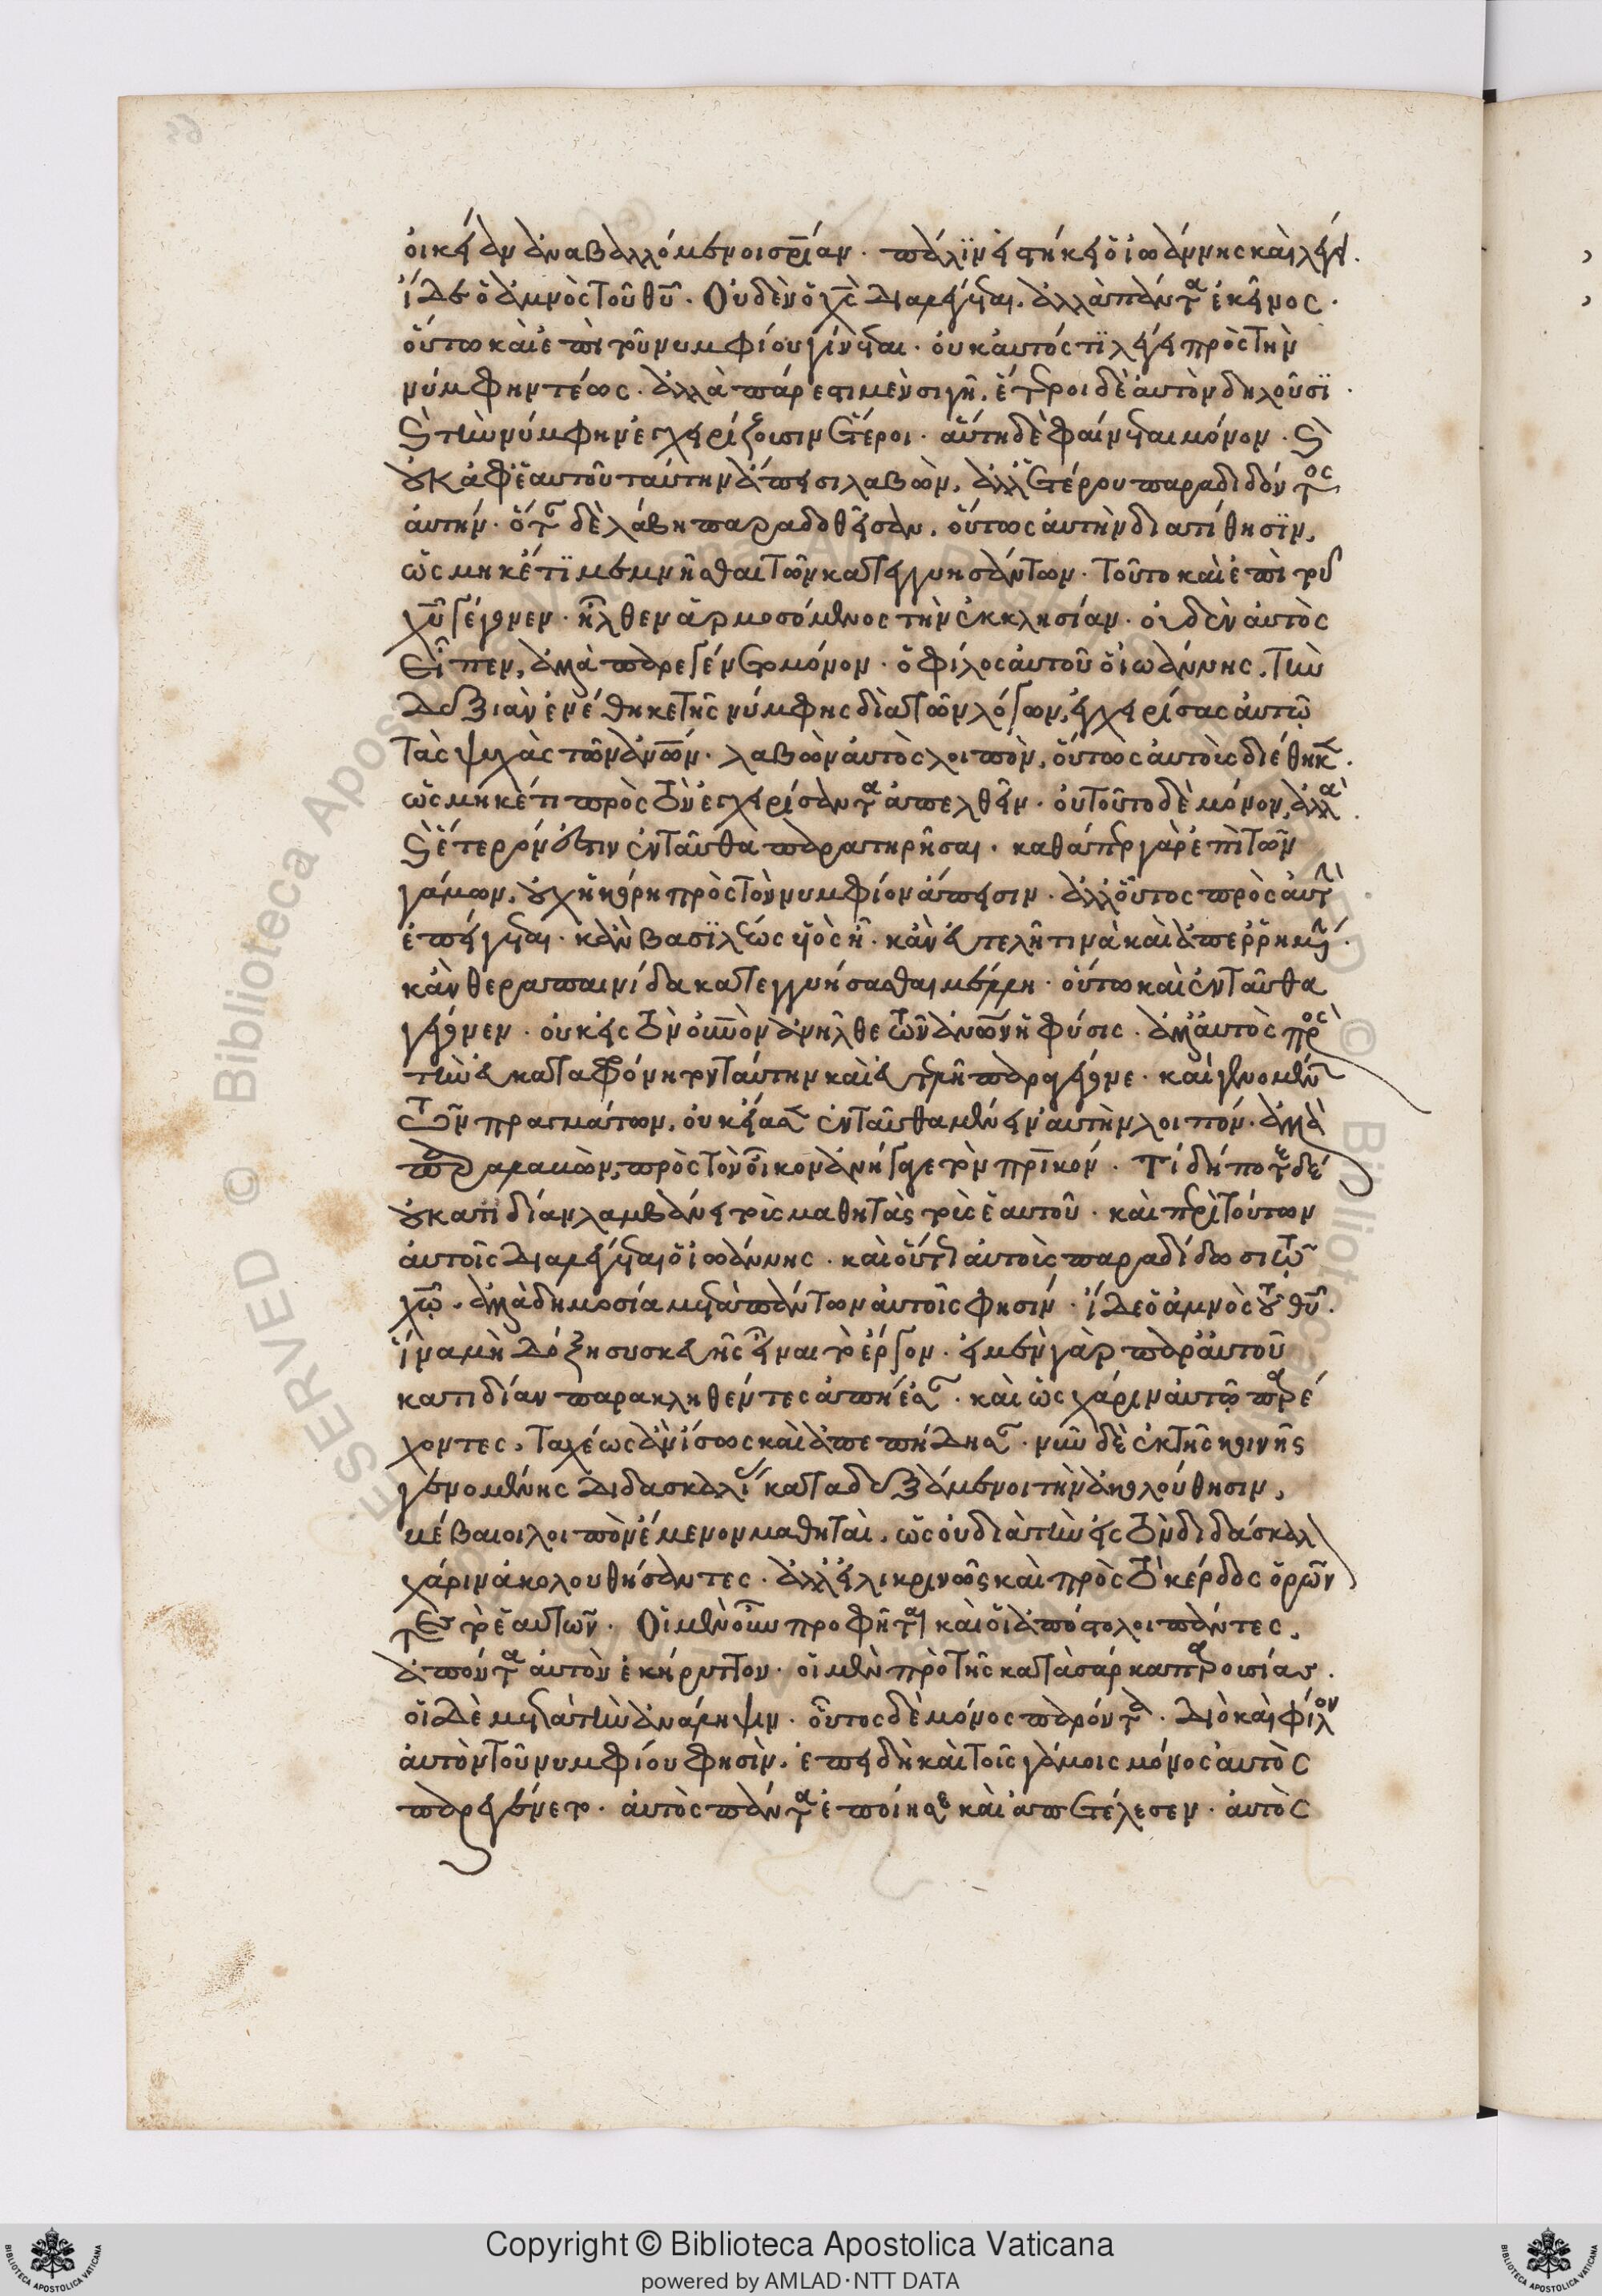 64
οικείαν αναβαλλόμενοι σρίαν. πάλϊν ειστήκει ὁ ἰωάννης καὶ λέγει.
ἴδε ὁ ἀμνὸς τοῦ θυ. Οὐδὲν ὁ χς διαλέγεται. ἀλλὰ πάντα ἐκεῖνος.
οὕτω καὶ ἐπὶ τοῦ νυμφίου γίνεται. οὐκ αυτός τϊ λέγει πρὸς τὴν
νύμφην τέως. ἀλλὰ πάρεστι μὲν σιγῆ. ἕτεροι δὲ αὐτὸν δηλοῦσϊ.
καὶ τὴν νύμφην ἐγχειρίζουσιν ἕτεροι. αὕτη δὲ φαίνεται μόνον. καὶ
οὐκ ἀφ' ἑαυτοῦ ταύτην ἄπεισι λαβὼν, ἀλλ' ἑτέρου παραδιδόντος
αὐτήν. ὅταν δὲ λάβη παραδοθεῖσαν. οὕτως αὐτὴν διατίθησϊν,
ὡς μηκέτϊ μεμνῆσθαι τῶν κατεγγυησάντων. Τοῦτο καὶ ἐπὶ τοῦ
χυ γέγονεν. ἦλθεν ἁρμοσόμενος τὴν ἐκκλησίαν. οὐδὲν αὐτὸς
εἶπεν, ἀλλὰ παρεγένετο μόνον. ὁ φίλος αὐτοῦ ὁ ἰωάννης, τὴν
δεξιὰν ἐνέθηκε τῆς νύμφης διὰ τῶν λόγων, ἐγχειρίσας αὐτῷ
τὰς ψυχὰς τῶν ανων. λαβὼν αὐτὸς λοιπὸν, οὕτως αὐτοὺς διέθηκεν.
ὡς μηκέτι πρὸς τὸν ἐγχειρίσαντα ἀπελθεῖν. οὐ τοῦτο δὲ μόνον, ἀλλὰ
καὶ ἕτερόν ἐστιν ἐνταῦθα παρατηρῆσαι. καθάπερ γὰρ ἐπὶ τῶν
γάμων, οὐχ ἡ κόρη πρὸς τὸν νυμφίον ἄπεισιν. ἀλλ' οὗτος πρὸς αὐτὴν
ἐπείγεται. κἂν βασϊλέως υἱὸς ῆ. κὰν εὐτελῆ τινὰ καὶ ἀπερῥημένην.
κὰν θεραπαινίδα κατεγγυήσασθαι μέλλη. οὕτω καὶ ἐνταῦθα
γέγονεν. οὐκ εἰς τὸν ουνὸν ἀνῆλθε τῶν ανων ἡ φύσις. ἀλλ' αὐτὸς πρὸς
τὴν εὐκαταφρόνητον ταύτην καὶ εὐτελῆ παραγέγονε. καὶ γενομένων
τῶν πραγμάτων, οὐκ είασεν ἐνταῦθα μένειν αὐτὴν λοιπόν. ἀλλὰ
παραλαβὼν, πρὸς τὸν οἶκον ἀνήγαγε τὸν πρικόν. Τί δήποτε δὲ
οὐ κατιδίαν λαμβάνει τοὺς μαθητὰς τοὺς ἑαυτοῦ. καὶ περὶ τούτων
αὐτοῖς διαλέγεται ὁ ἰωάννης. καὶ οὕτω αὐτοὺς παραδίδωσι τῷ
χῶ. ἀλλὰ δημοσία μετὰ πάντων αὐτοῖς φησίν. ἴδε ὁ ἀμνὸς τοῦ θυ.
ἵνα μὴ δόξη συσκευῆς εἶναι τὸ ἔργον. εἰ μὲν γὰρ παρ' αὐτοῦ
κατιδίαν παρακληθέντες ἀπήεσαν. καὶ ὡς χάριν αὐτῷ παρέ
χοντες, ταχέως ἂν ἴσως καὶ ἀπεπήδησαν. νῦν δὲ ἐκ τῆς κοινῆς
γενομένης διδασκαλίας καταδεξάμενοι τὴν ἀκολούθησιν,
βέβαιοι λοιπὸν ἔμενον μαθηταὶ. ὡς οὐ διὰ τὴν εἰς τὸν διδάσκαλον
χάριν ἀκολουθήσαντες. ἀλλ' εἰλικρινῶς καὶ πρὸς τὸ κέρδος ὁρῶν
τες τὸ ἑαυτῶν. Οἱ μὲν οὖν προφῆται καὶ οἱ ἀπόστολοι πάντες,
ἀπόντα αὐτὸν ἐκήρυττον. οἱ μὲν πρὸ τῆς κατὰ σάρκα παρουσίας.
οἱ δὲ μετὰ τὴν ἀνάληψιν. οὗτος δὲ μόνος παρόντα. διὸ καὶ φίλον
αὐτὸν τοῦ νυμφίου φησὶν. ἐπειδὴ καὶ τοῖς γάμοις μόνος αὐτὸς
παρεγένετο. αὐτὸς πάντα ἐποίησε καὶ ἀπετέλεσεν. αὐτὸς
RESERVED © Biblioteca Apostolica Vaticana
© Biblioteca
Copyright © Biblioteca Apostolica Vaticana
powered by AMLAD·NTT DATA
BIBLIOTECA APOSTOLICA VATICANA
BIBLIOTECA APOSTOLICA VATICANA